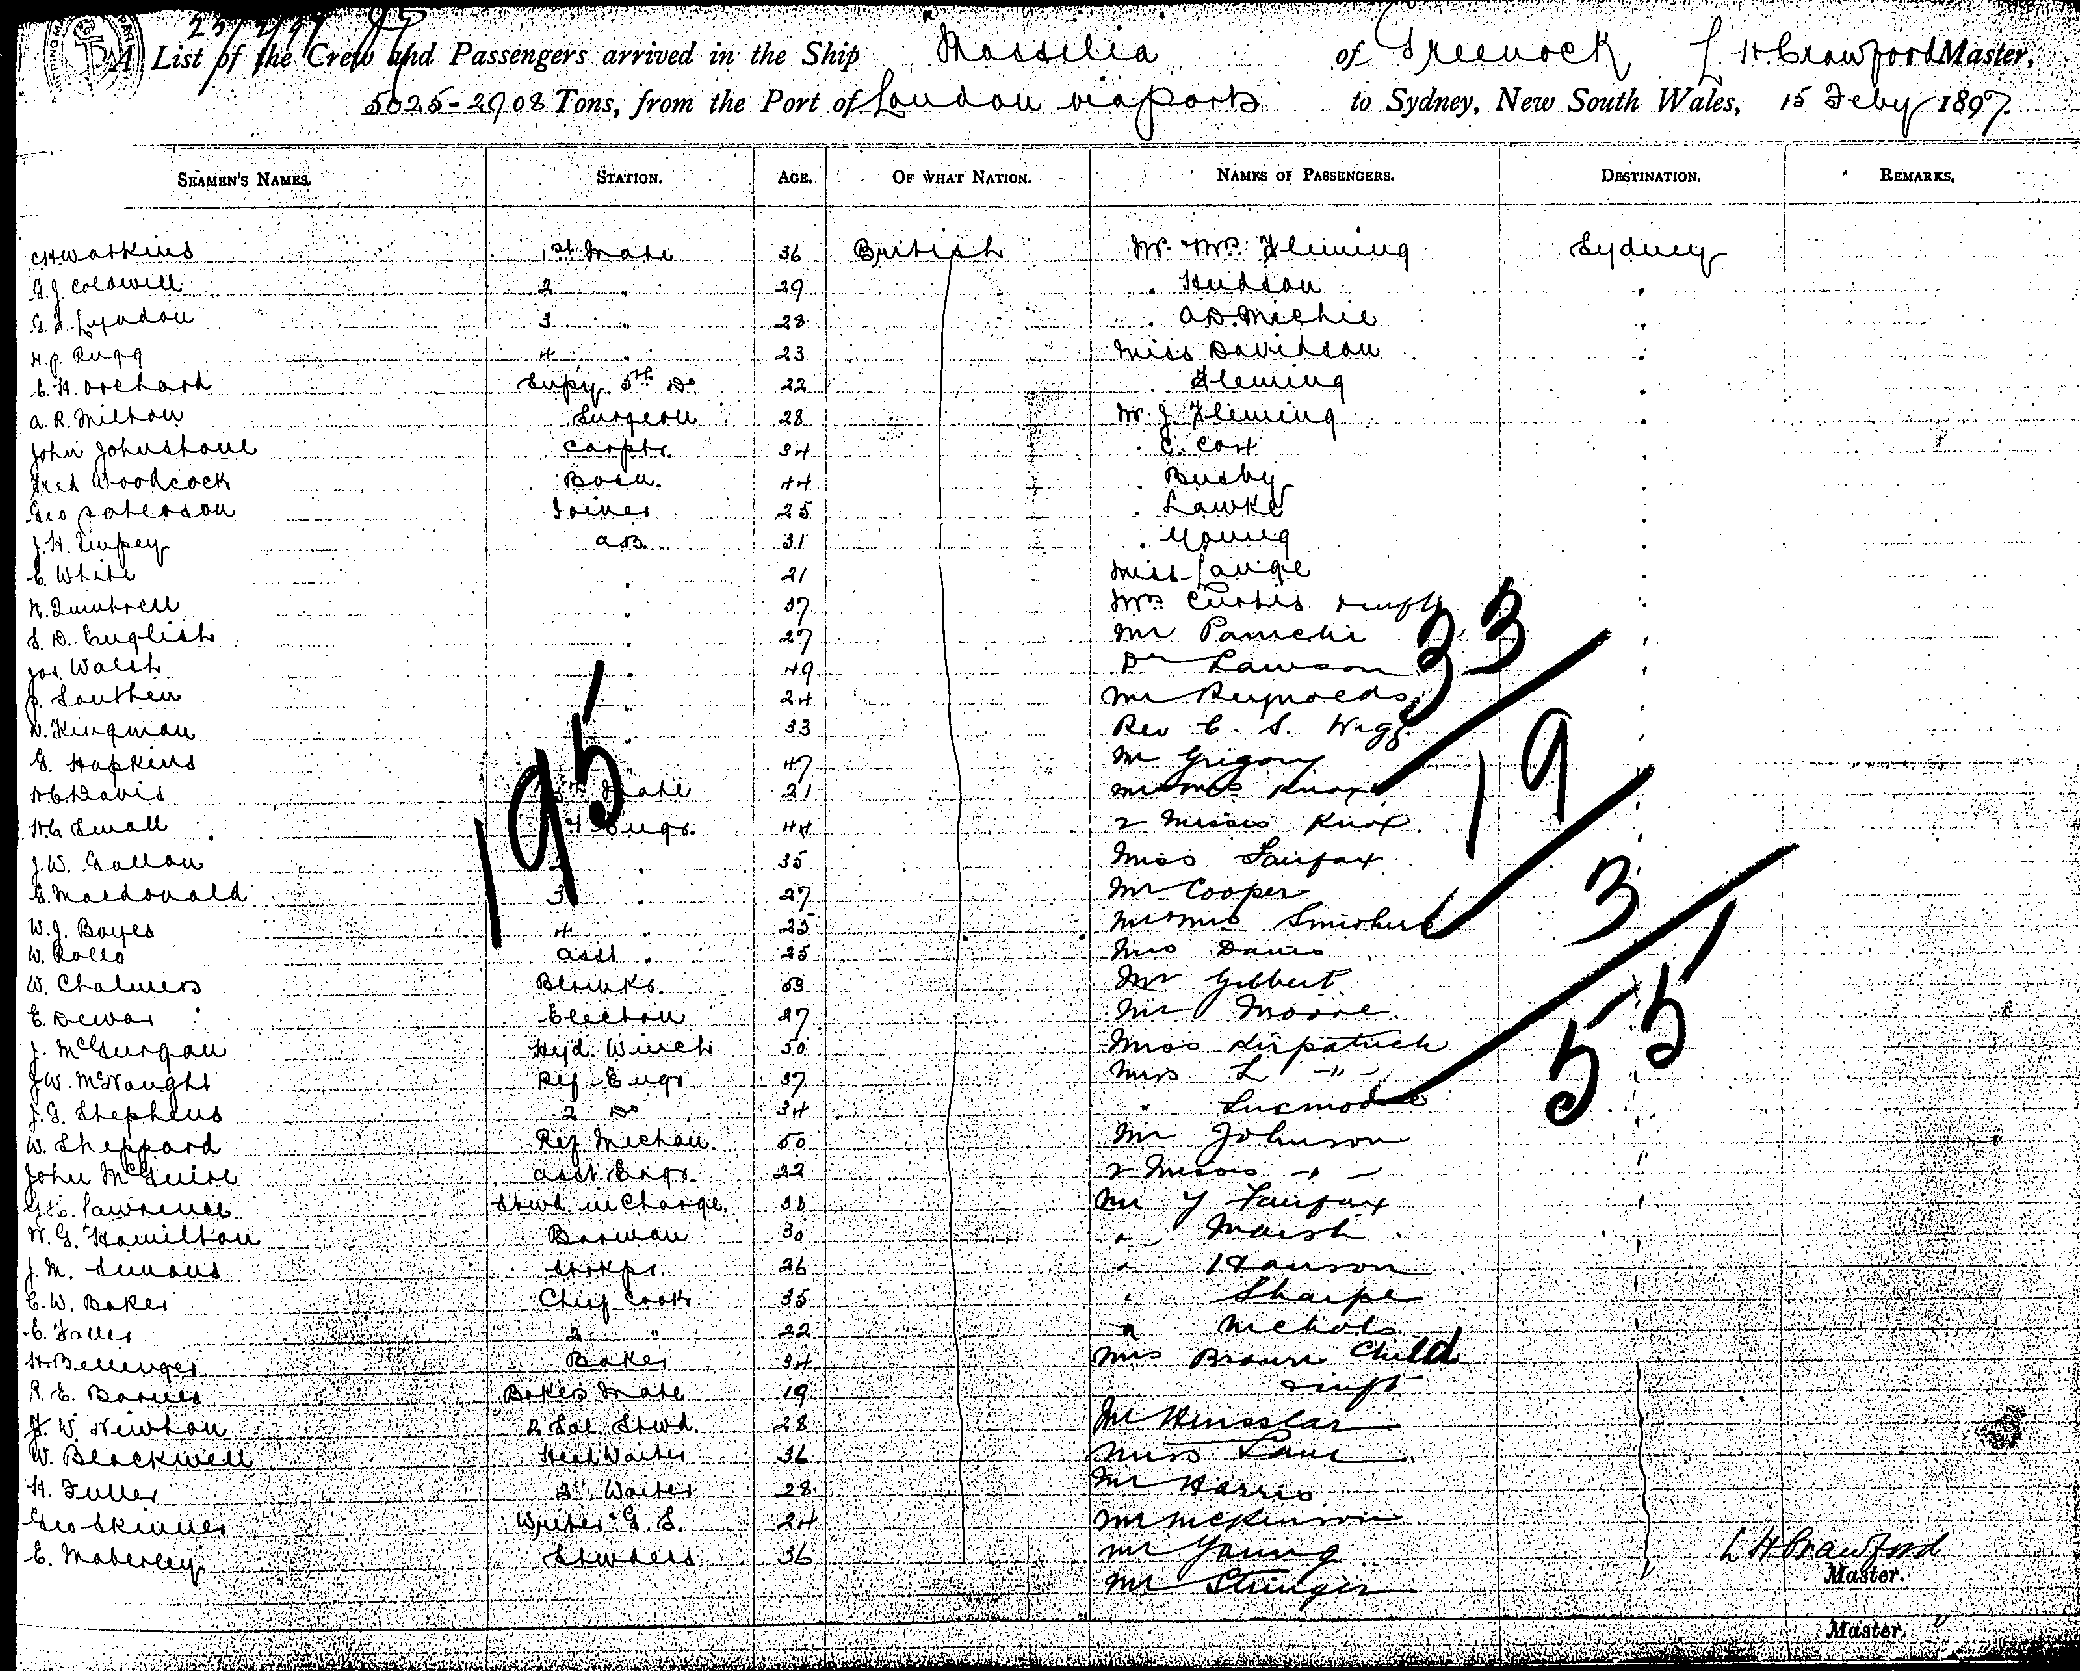 A List of the Crew and Passengers arrived in the Ship Massilia of Greenock L. H. Crawford Master,
5025-2908 Tons, from the Port of London via ports to Sydney, New South Wales, 15 Feby 1897.
SEAMEN'S NAMES. STATION. AGE. OF WHAT NATION. NAMES OF PASSENGERS. DESTINATION. REMARKS.
C H Watkins 1st Mate 36 British Mr & Mrs Fleming Sydney
G. J. Coldwell 2 " 29 " Hudson "
G. S. Lyndon 3 " 28 " A.D. Michie "
H. J. Rugg 4 " 23 Miss Davidson "
C. H. Orchard Supy 5th Do 22 " Fleming "
A. R. Milton Surgeon 28 Mr J Fleming "
John Johnstone Carptr. 34 " C. Cox "
Fred Woodcock Bosn. 44 " Busby "
Geo Paterson Joiner 25 " Lawke "
J. H. AB 31 " Young "
C. White " 21 Miss Lange "
" 37 Mrs Curtis & inft "
S. D. English " 27 Mr "
Jos. Walsh " 49 Dr Lawson "
J. Southen " 24 Mr Reynolds "
D. Kingman " 33 Rev C. S. Wigg "
G. Hopkins 47 Mr Grigory "
H C Davis Mate 21 Mr & Mrs Knox "
H. C. Small Engr. 44 2 Misses Knox
J. W. Gallon " 35 Miss Fairfax
G. Macdonald 3 " 27 Mr Cooper
W. J. Boyes 4 " 25 Mr & Mrs
W. Rollo Asst " 25 Mrs Davis
W. Chalmers 53 Mr Gilbert
E. Dewar Electn 27 Mr Moore
J. McGurgan Hyd. Winch 50 Miss Kirpatrick
J. W. McNaught Ref Engr 37 Miss L "
J. G. Stephens 2 Do 34 " Lucmodie
W. Sheppard Ref Mechan. 50 Mr Johnson
John McGuire Asst Engr. 22 2 Misses "
Lawrence Stwd in Charge 38 Mr J Fairfax
W. G. Hamilton Barman 30 " Marsh
J. M. Simons Storkpr. 26 " Hanson
C. W. Baker Chief Cook 35 " Sharpe
E. 2 " 22 " Nichols
H. Bellenger Baker 34 Mrs Brown Child
R. E. Barnes Bakers Mate 19 & inft
F. W. Newton 2 Sal Stwd. 28 Mr
W. Blackwell Head Waiter 36 Miss Lane
H. Fuller 2d Waiter 28 Mr Harris
Geo Skinner Writer G. S. 24 Mr McKinson
E. Moberley Stwdess 36 Mr Young
Mr Stringer
195
33
19
3
55
L H Crawford
Master.
Master.